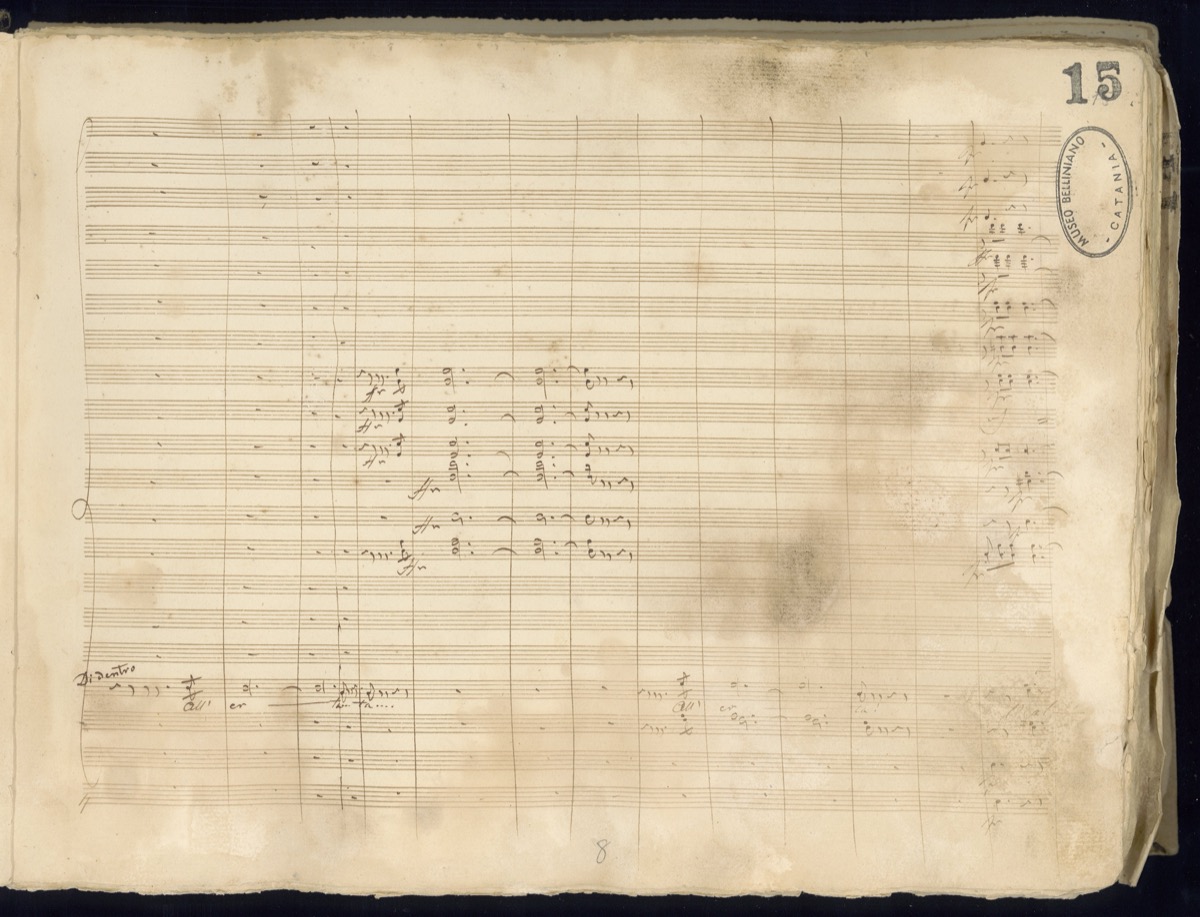 15
MUSEO BELLINIANO
- CATANIA -
Di dentro
all' er ta.... all' er ta
8